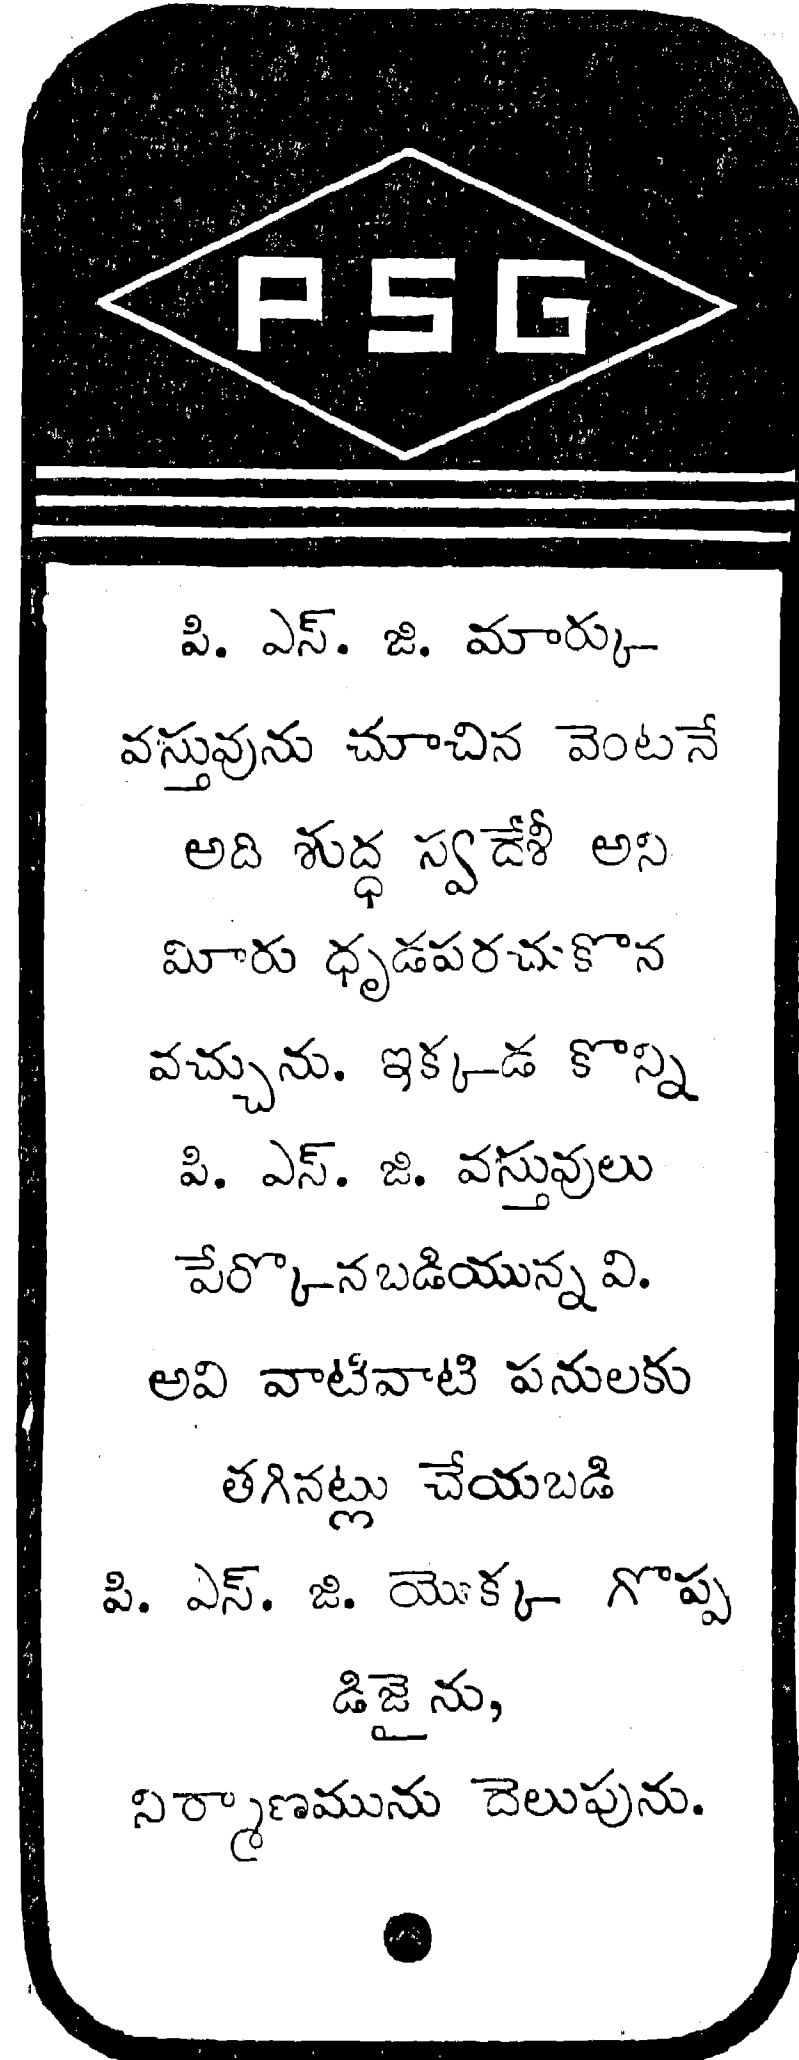 PSG
పి. ఎస్. జి. మార్కు
వస్తువును చూచిన వెంటనే
అది శుద్ధ స్వదేశీ అని
మీరు ధృడపరచుకొన
వచ్చును. ఇక్కడ కొన్ని
పి. ఎస్. జి. వస్తువులు
పేర్కొనబడియున్నవి.
అవి వాటివాటి పనులకు
తగినట్లు చేయబడి
పి. ఎస్. జి. యొక్క గొప్ప
డిజైను,
నిర్మాణమును దెలుపును.